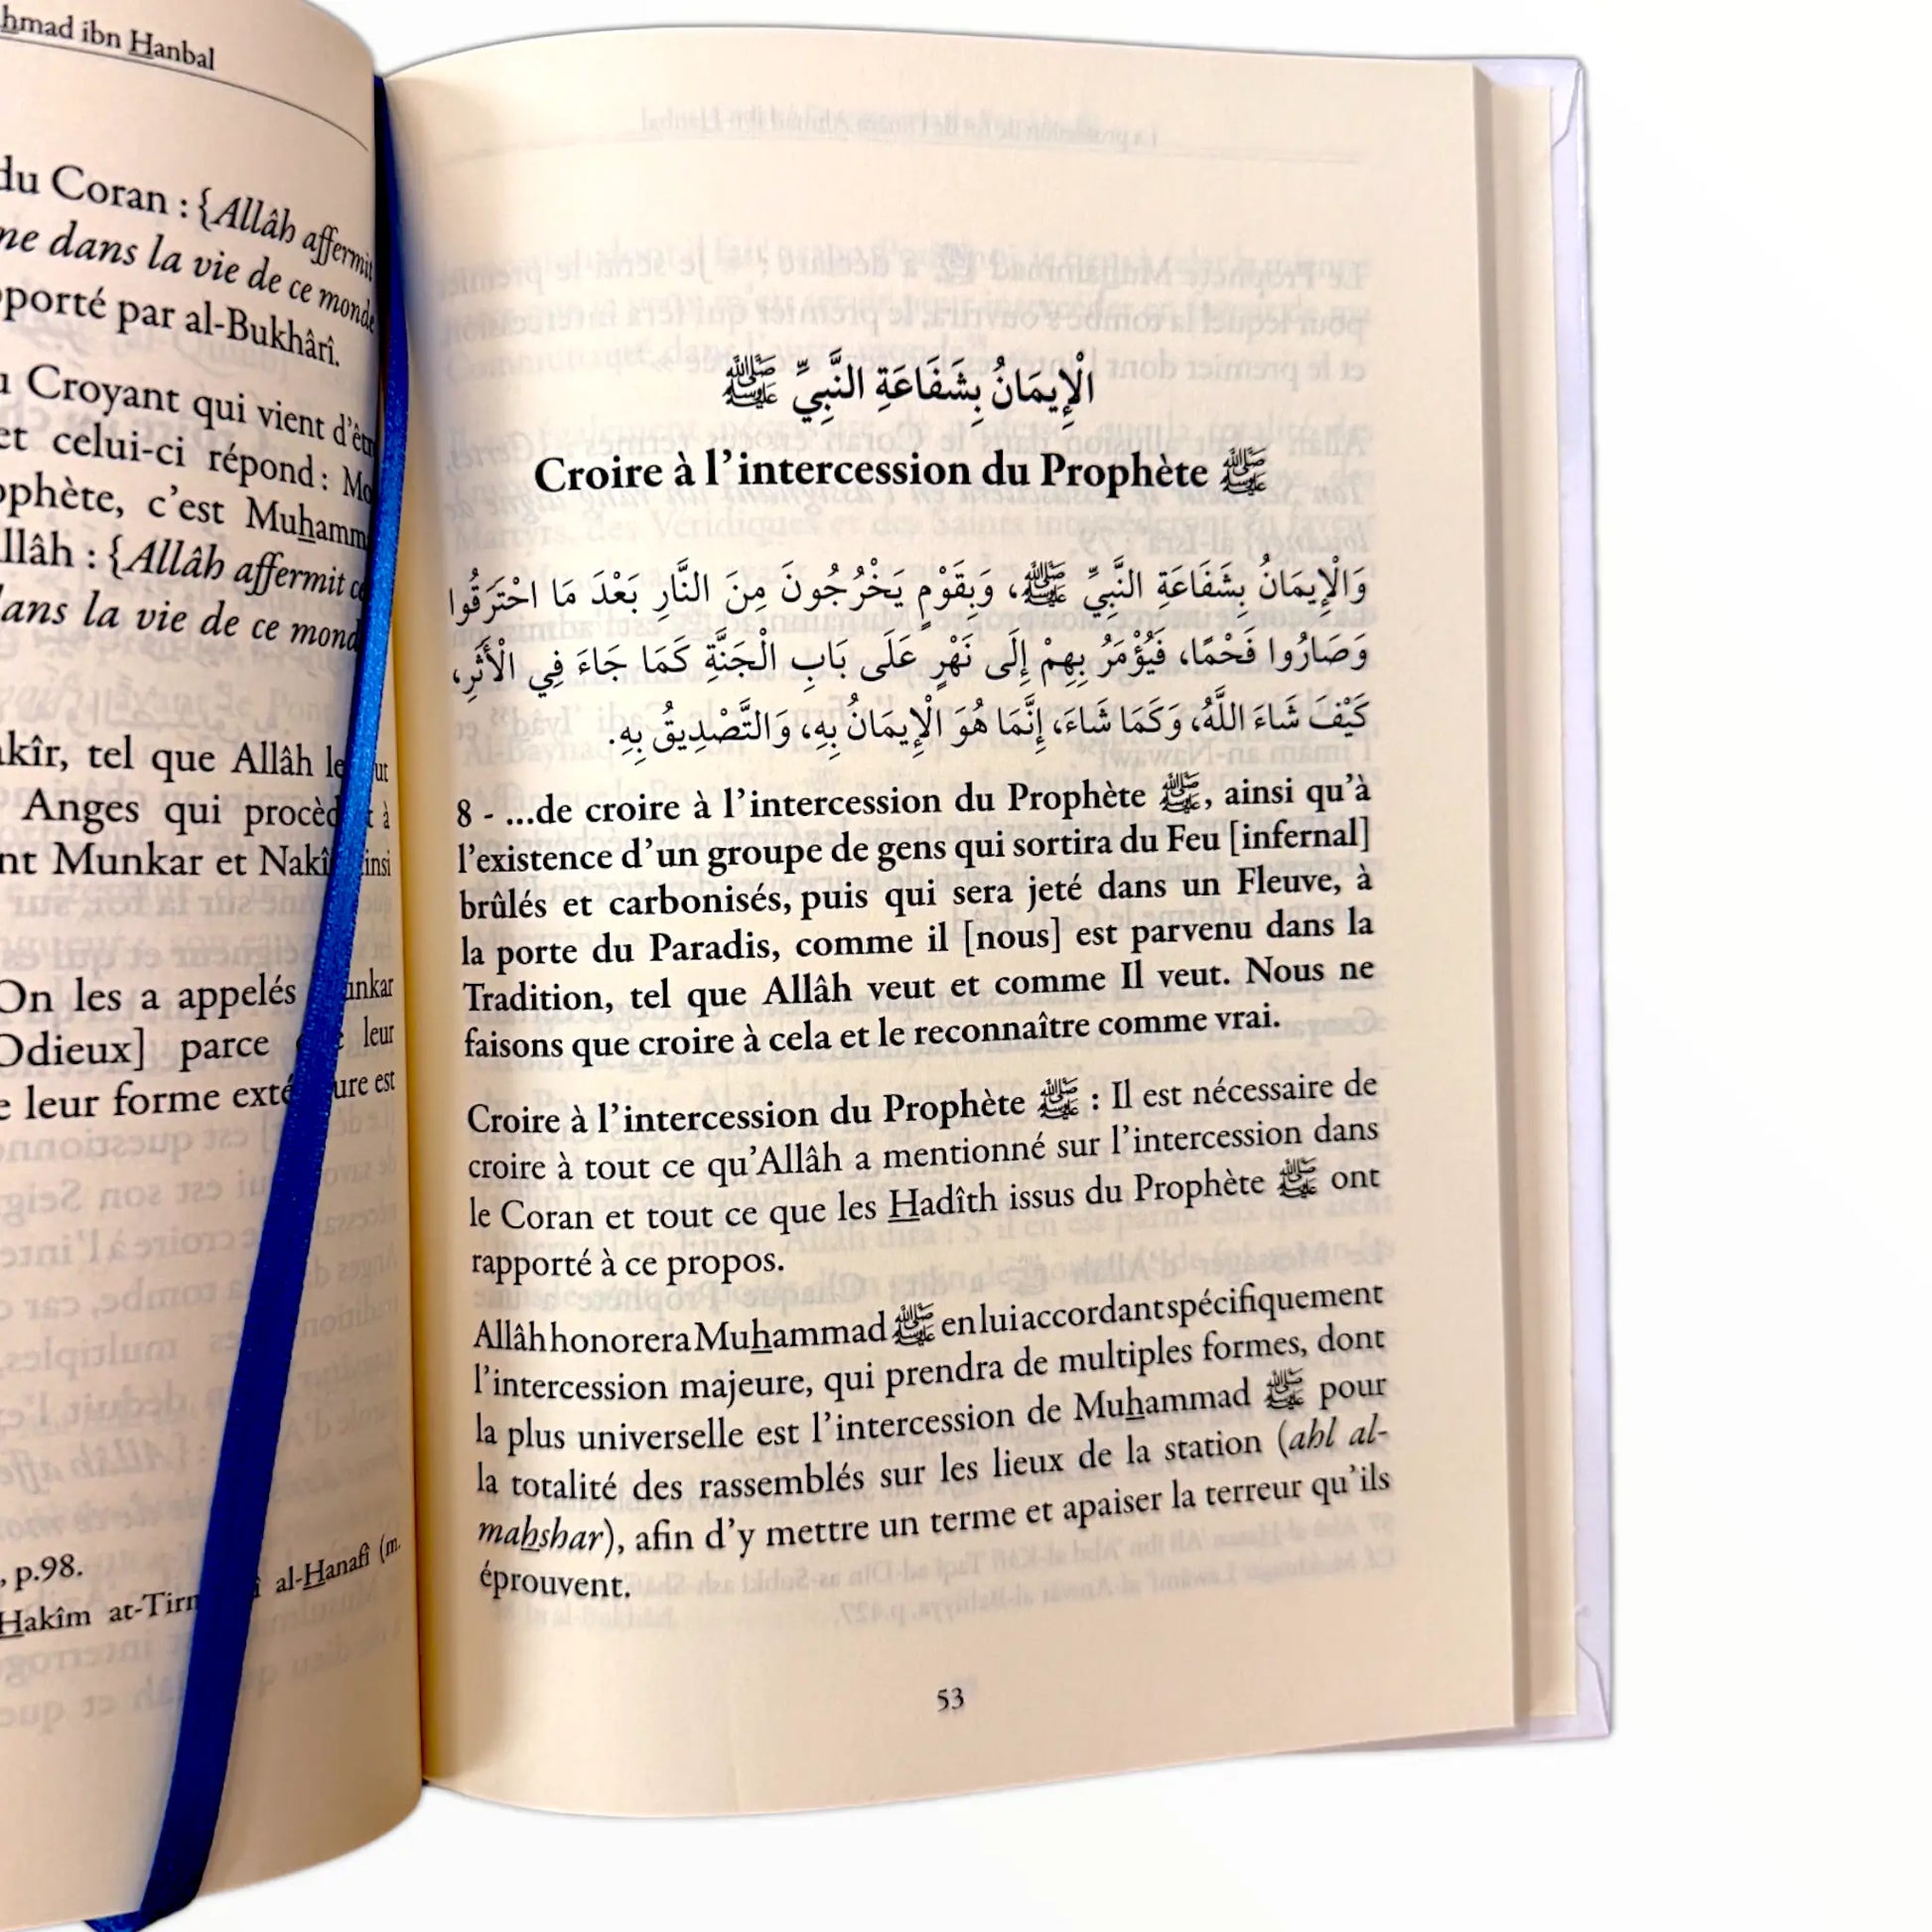 hmad ibn Hanbal
du Coran : {Allâh affermit
me dans la vie de ce monde
porté par al-Bukhârî.
Croyant qui vient d'être
et celui-ci répond : Mo
ophète, c'est Muhamm
llâh : {Allâh affermit ce
dans la vie de ce mond
akîr, tel que Allâh le
Anges qui procèd
nt Munkar et Nakî
On les a appelés unkar
Odieux] parce leur
e leur forme exté ure est
, p.98.
Hakîm at-Tirm î al-Hanafî (m.
الْإِيمَانُ بِشَفَاعَةِ النَّبِيِّ ﷺ
Croire à l'intercession du Prophète ﷺ
وَالْإِيمَانُ بِشَفَاعَةِ النَّبِيِّ ﷺ، وَبِقَوْمٍ يَخْرُجُونَ مِنَ النَّارِ بَعْدَ مَا احْتَرَقُوا
وَصَارُوا فَحْمًا، فَيُؤْمَرُ بِهِمْ إِلَى نَهْرٍ عَلَى بَابِ الْجَنَّةِ كَمَا جَاءَ فِي الْأَثَرِ،
كَيْفَ شَاءَ اللَّهُ، وَكَمَا شَاءَ، إِنَّمَا هُوَ الْإِيمَانُ بِهِ، وَالتَّصْدِيقُ بِهِ.
8 - ...de croire à l'intercession du Prophète ﷺ, ainsi qu'à
l'existence d'un groupe de gens qui sortira du Feu [infernal]
brûlés et carbonisés, puis qui sera jeté dans un Fleuve, à
la porte du Paradis, comme il [nous] est parvenu dans la
Tradition, tel que Allâh veut et comme Il veut. Nous ne
faisons que croire à cela et le reconnaître comme vrai.
Croire à l'intercession du Prophète ﷺ : Il est nécessaire de
croire à tout ce qu'Allâh a mentionné sur l'intercession dans
le Coran et tout ce que les Hadîth issus du Prophète ﷺ ont
rapporté à ce propos.
Allâh honorera Muhammad ﷺ en lui accordant spécifiquement
l'intercession majeure, qui prendra de multiples formes, dont
la plus universelle est l'intercession de Muhammad ﷺ pour
la totalité des rassemblés sur les lieux de la station (ahl al-
mahshar), afin d'y mettre un terme et apaiser la terreur qu'ils
éprouvent.
53